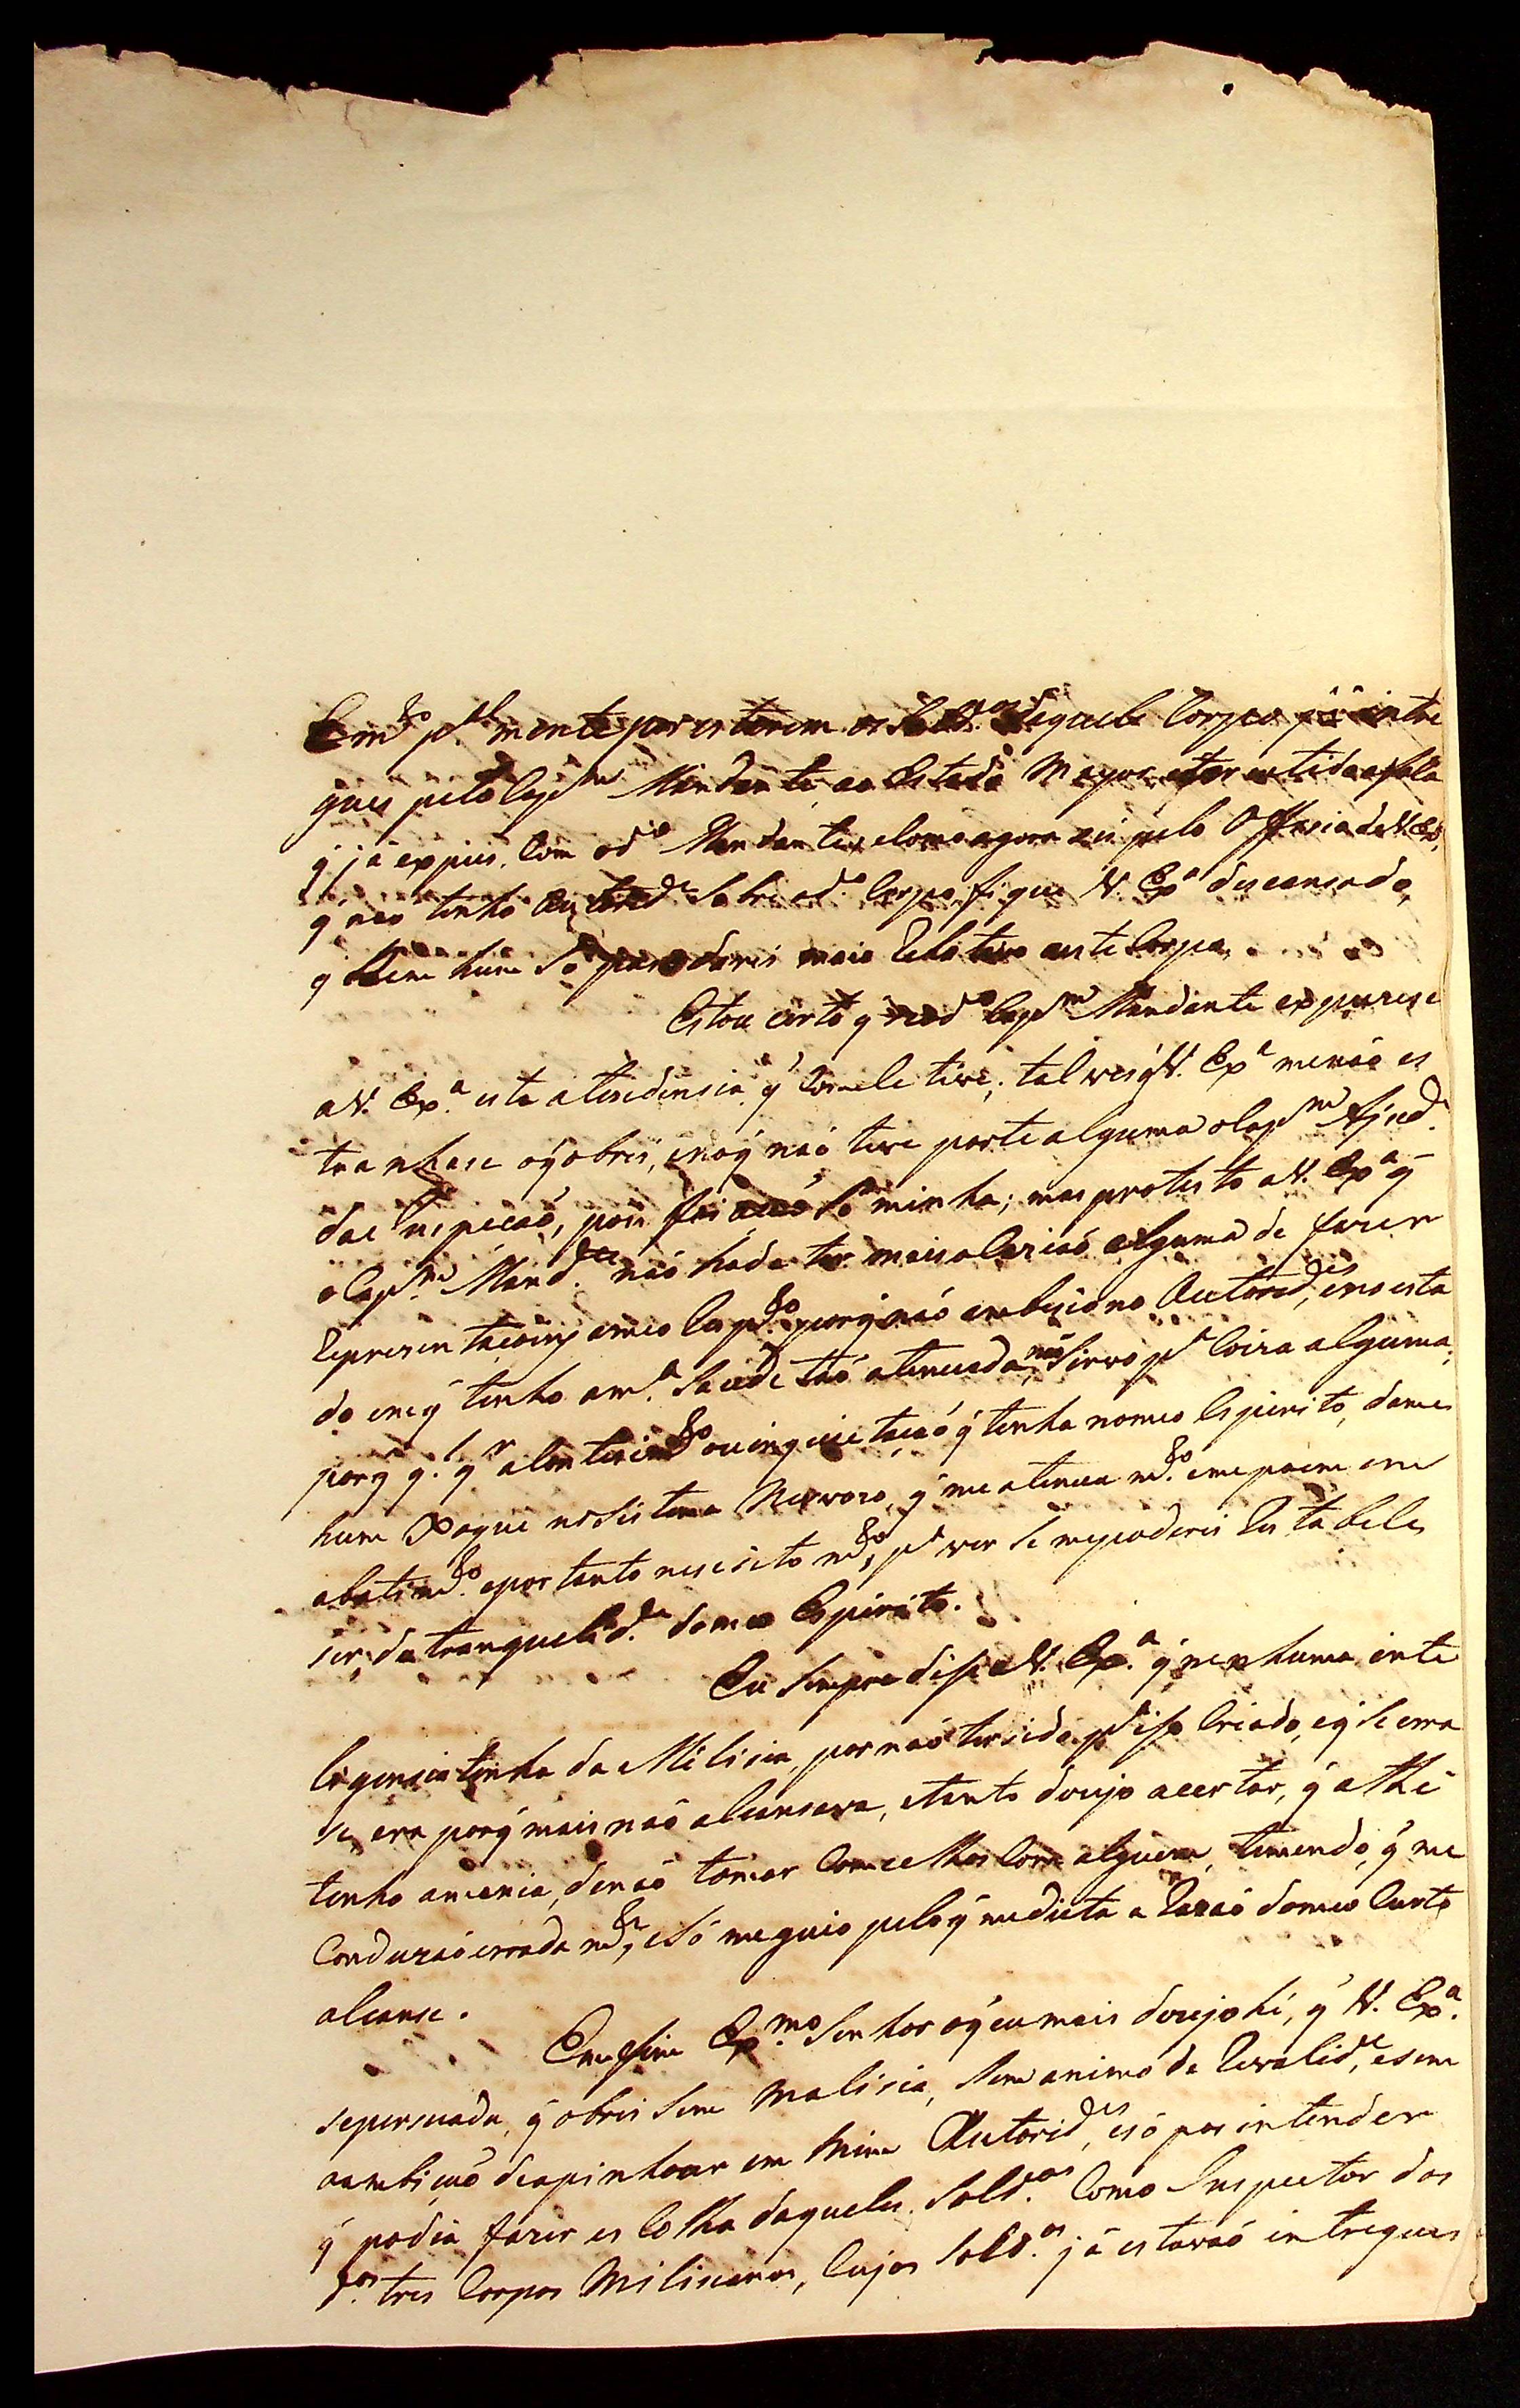 mente por estarem os Sold.os daquele Corpo já intre
gues pelo Cap.m Mandante, ao Estado Mayor,
q̃ já expus. Com o d.o Mandante, e como agora vi pelo Officio de V. Ex.
q̃ não tinha Autorid.e Sobre o d.o Corpo, fique V. Ex.a descansado,
q̃ nem hum Só paso darei mais Relativo a este Corpo.
Estou certo q̃ o d.o Cap.m Mandante expuzese
a V. Ex.a esta atendensia q̃ Com ele tive, talves q̃ V. Ex.a me não es
tranhase o q̃ obrei, e no q̃ não teve parte alguma o Cap.m Ajud.e
da Inspecaõ, pois foi acaõ Só minha; mas protesto a V. Ex.a q̃
o Cap.m Mand.te não hade ter mais ocaziaõ alguma de fazer
Reprezentacoins a meo Resp.to porq̃ não ambiciono Autorid.es, e no esta
do em q̃ tenho a m.a Saude taõ atenuada, não Sirvo p.a Coiza alguma,
porq̃ q.l q.r alontesim.to ou inquietacaõ q̃ tenha no meo Espirito, dames
hum Xoque no Sistema Nervozo, q̃ me atenua m.to e me poem em
abatim.to e por tanto nesesito m.to, p.a ver Se me poderei Restabele
ser, da tranquelid.e do meo Espirito.
Eu Sempre dise a V. Ex.a q̃ nenhuma inte
legensia tinha da Milisia, por não ter sido p.a iso Criado, e q̃ Se erra
se, era porq̃ mais não alcansava, e tanto dezejo acertar, q̃ athé
tenho a mania, de não tomar Comcelhos Com alguem, temendo, q̃ me
Conduzaõ errada m.te, e Só me guio pelo q̃ me dicta a Razaõ do meo Curto
alcanse.
Em fim Ex.mo Senhor o q̃ eu mais dezejo hé, q̃ V. Ex.a
se persuada, q̃ obrei Sem malisia, Sem animo de Rivalid.e, e sem
aambiçaõ de apinhoar em mim Autorid.es, e só por intender
q̃ podia fazer escolha daqueles Sold.os Como Inspector dos
d.os tres Corpos Milisianos, Cujos Sold.os já estavaõ intregues